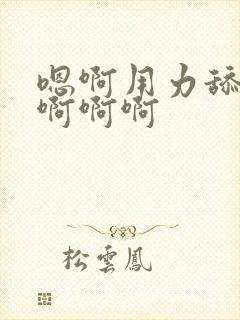 嗯啊用力舔
啊啊啊
松雲鳳